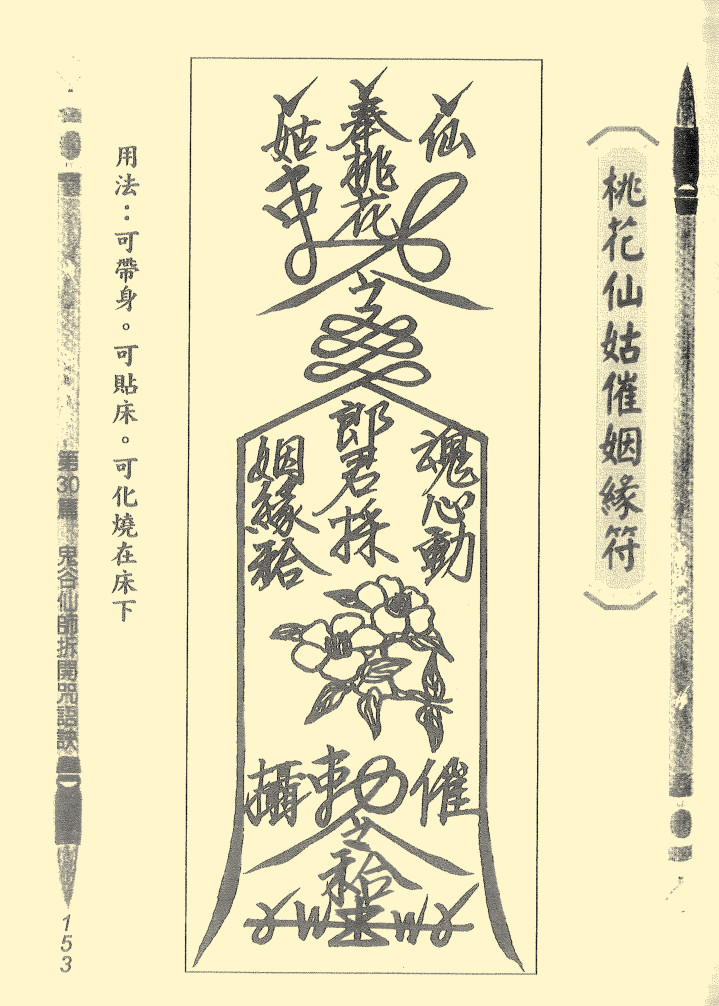 桃花仙姑催姻緣符
仙
奉桃花
姑
魂心動
郎君採
姻緣
催
攝
用法：可帶身。可貼床。可化燒在床下
第30篇 鬼谷仙師拆開咒語訣
153